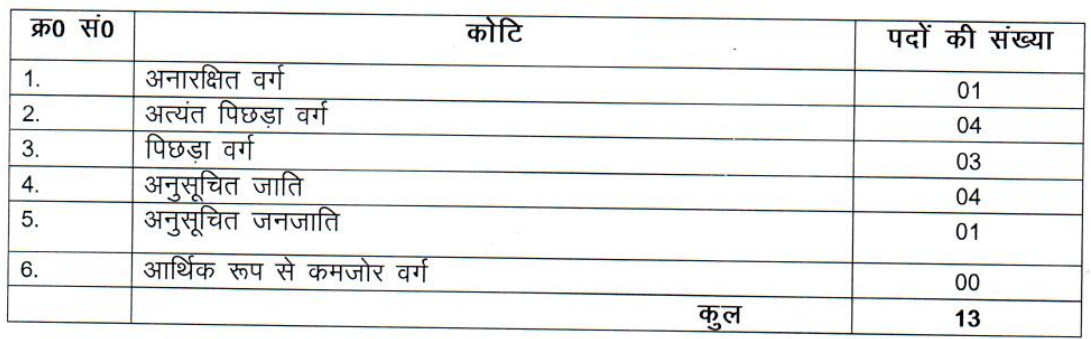 क्र0 सं0 कोटि पदों की संख्या
1. अनारक्षित वर्ग 01
2. अत्यंत पिछड़ा वर्ग 04
3. पिछड़ा वर्ग 03
4. अनुसूचित जाति 04
5. अनुसूचित जनजाति 01
6. आर्थिक रूप से कमजोर वर्ग 00
कुल 13